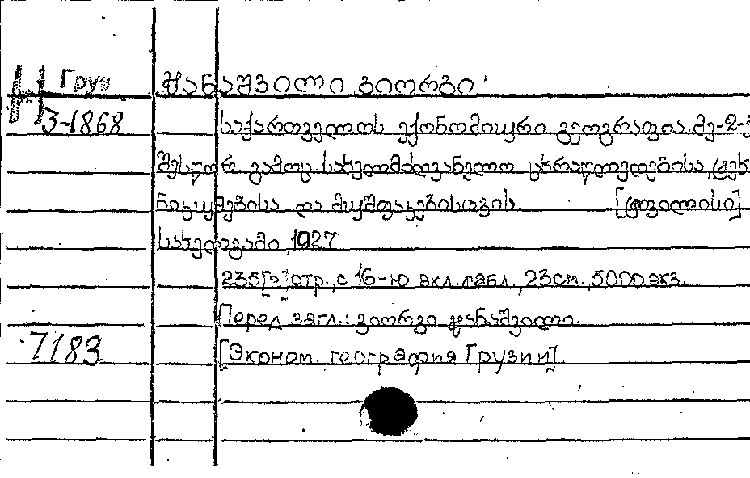 Н Груз
3-1868
ჯანაშვილი გიორგი
საქართველოს ეკონომიური გეოგრაფია. მე-2-ე
შესწორ. გამოც. სახელმძღვანელო
და მუშფაკებისათვის [ტფილისი]
1927
235[3] стр., с 16-ю вкл. табл., 23см., 5000 экз.
Перед загл.: გიორგი ჯანაშვილი.
7183
[Эконом. география Грузии].